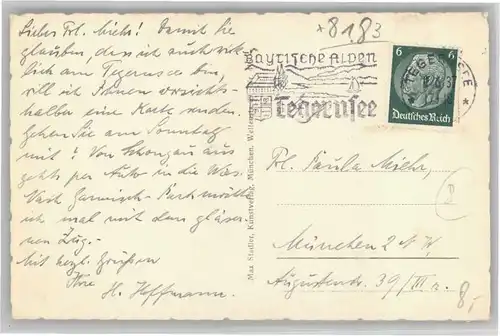 Liebes Frl. Miehr! Damit Sie
glauben, dass ich auch wirk-
lich am Tegernsee bin,
will ich Ihnen vorsichts-
halber eine Karte senden.
Gehen Sie am Sonntag
mit? Von Schongau aus
gehts per Auto in die Wies.
Nach Garmisch-Partk. möcht
ich mal mit dem gläser-
nen Zug.-
Mit herzl. Grüßen
Ihre
H. Hoffmann.
Max Stadler, Kunstverlag, München,
*8183
Bayrische Alpen
Tegernsee
TEGERNSEE
6 6
Deutsches Reich
Frl. Paula Miehr,
München 2 N.W.
Augustenstr. 39/III r.
8,-